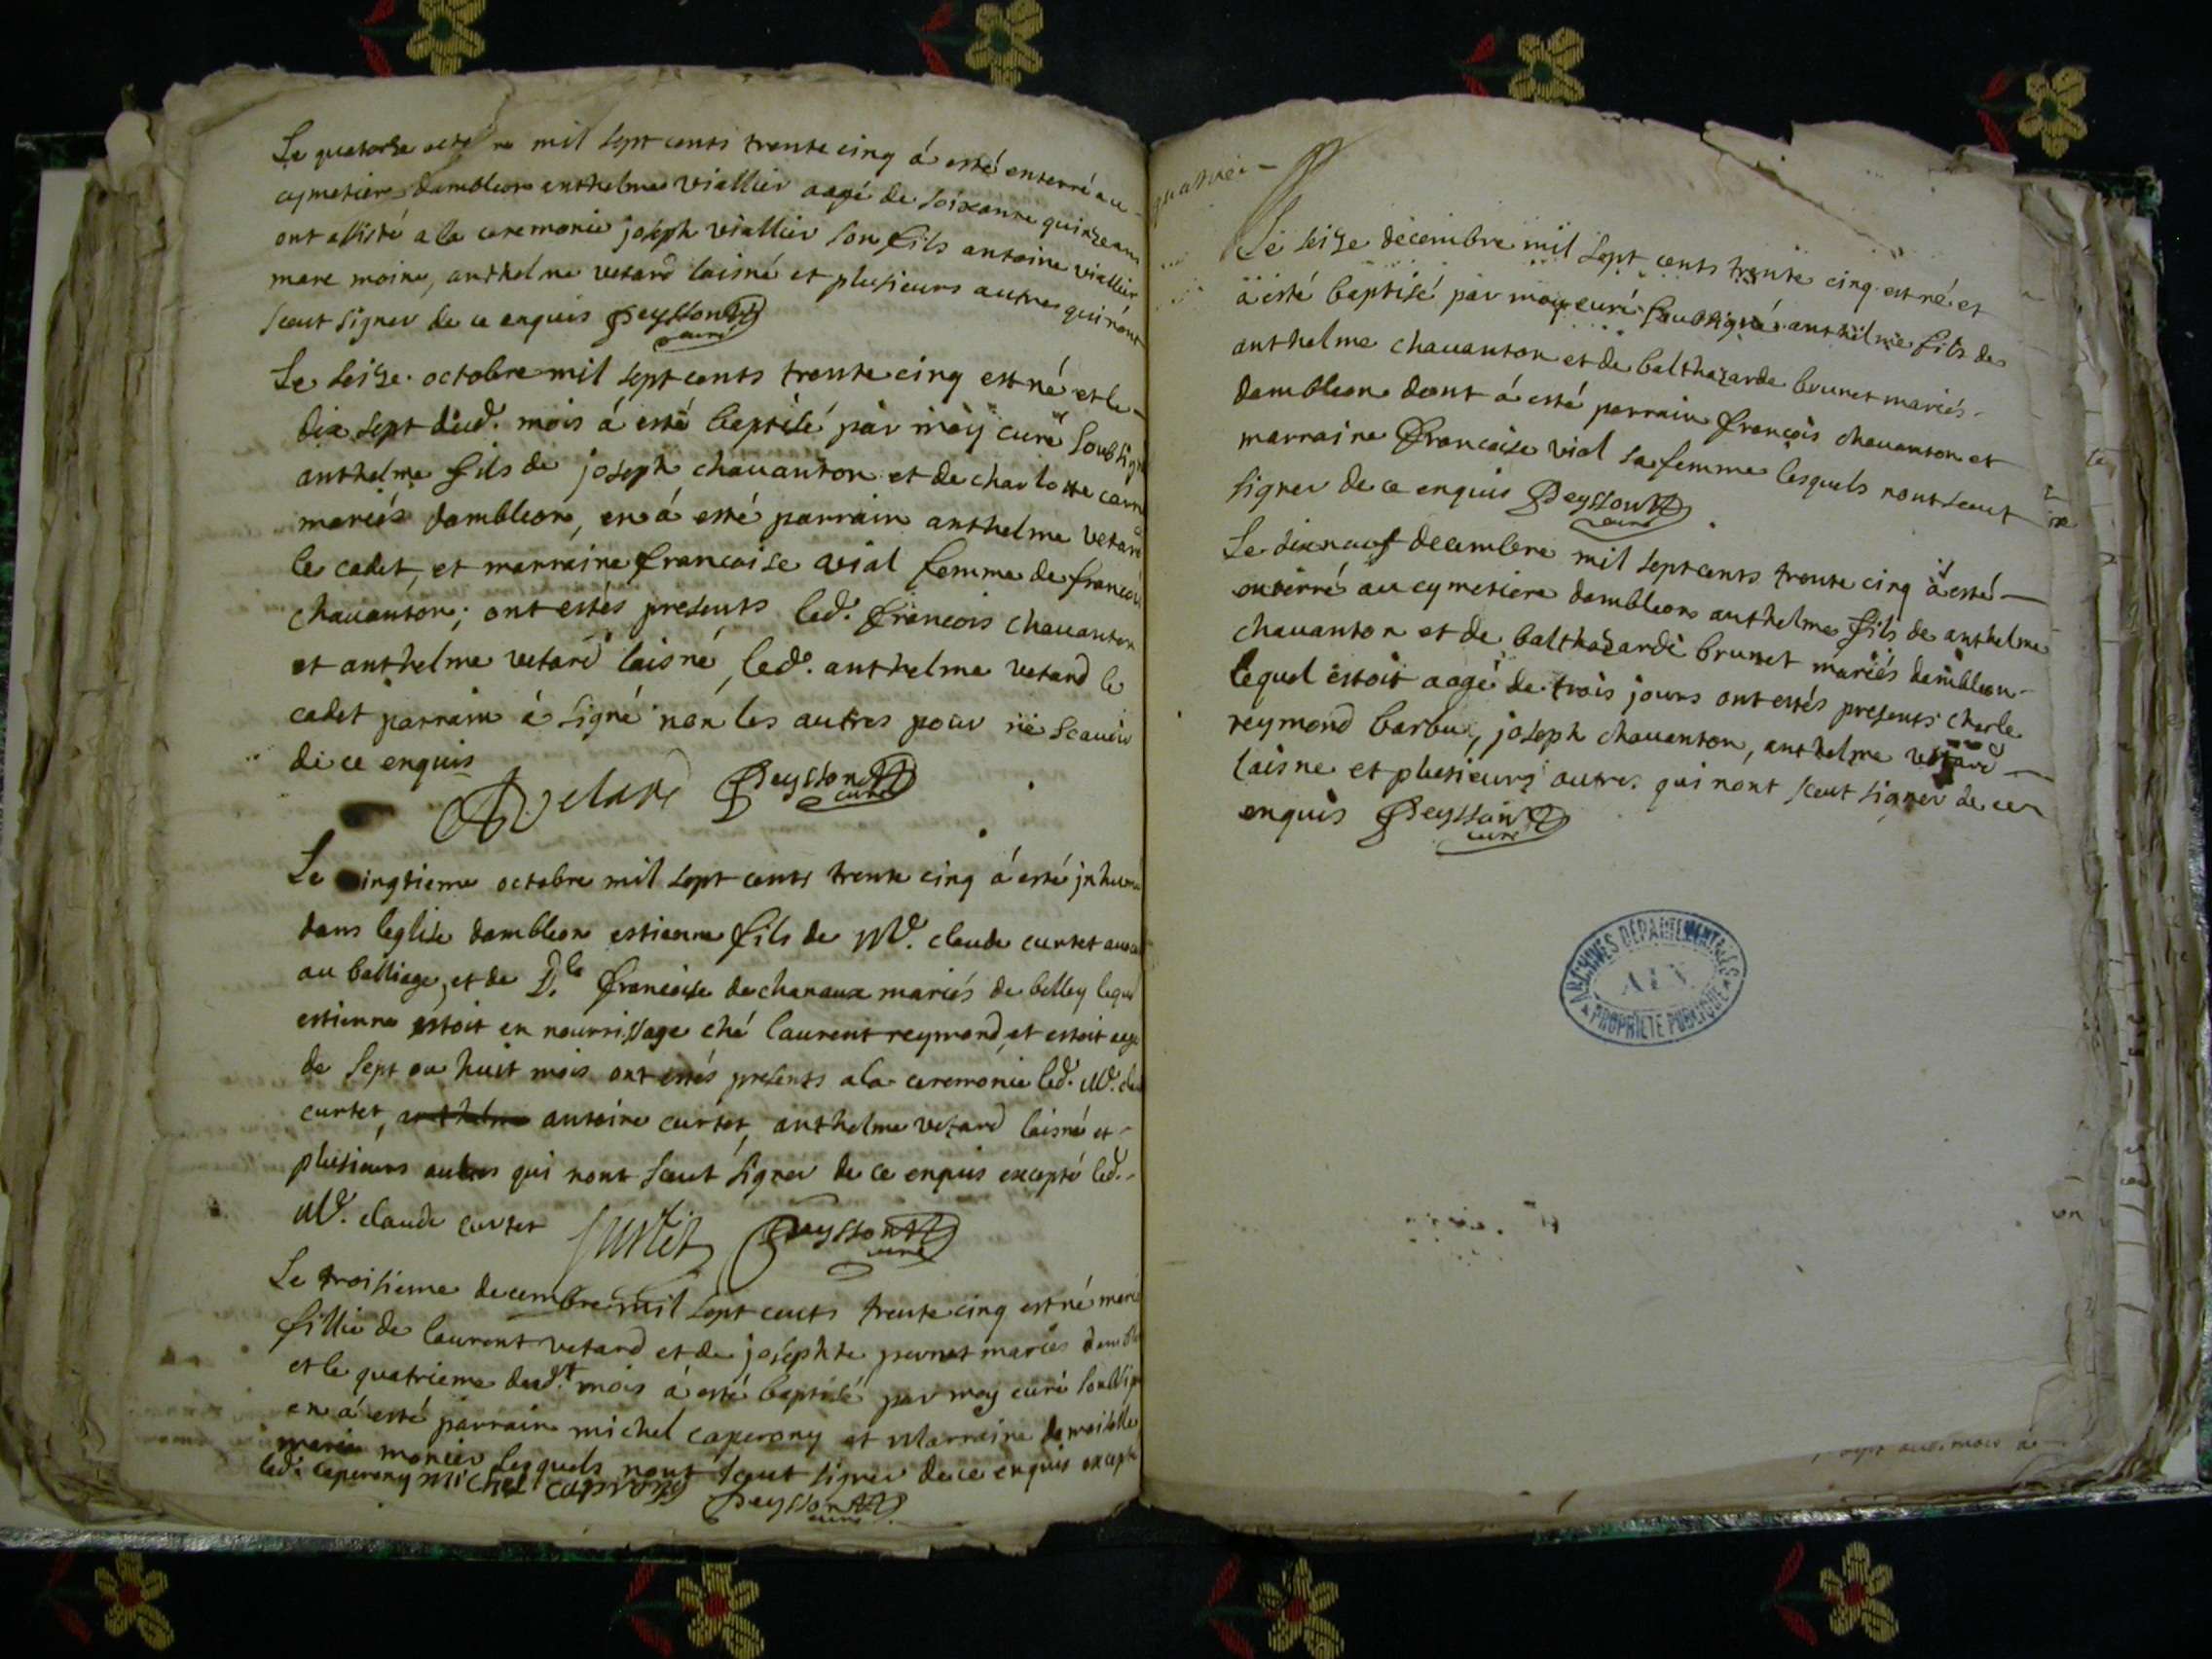 Le quatorse octo re mil sept cents trente cinq á esté enterré au
cymetiere dambleon anthelme viallier aagé de soixante quinze ans
ont assisté a la ceremonie joseph viallier son fils antoine viallier
mare moine, anthelme vetard laisné et plusieurs autres qui nont
sceut signer de ce enquis Peysson
curé
Le seise octobre mil sept cents trente cinq est né et le
dix sept dud. mois á esté baptisé par moy curé soubsig
anthelme fils de joseph chavanton et de charlotte
mariés dambleon, en á esté parrain anthelme vetard
le cadet, et marraine francoise vial femme de francois
chavanton; ont estés presents led. francois chavanton
et anthelme vetard laisné, led. anthelme vetard le
cadet parrain á signé non les autres pour ne scavoir
de ce enquis
A vetard Peysson
curé
Le ingtieme octobre mil sept cents trente cinq á esté jnhumé
dans leglise dambleon estienne fils de Me. claude curtet
au balliage, et de Dle francoise de chanaux mariés de belley lequel
estienne estoit en nourrissage ché laurent reymond, et estoit aagé
de sept ou huit mois ont estés presents a la ceremonie led. Me.
curtet, anthelme antoine curtet, anthelme vetard laisné et
plusieurs autres qui nont sceut signer de ce enquis excepté led.
Me. claude curtet Curtet Peysson
curé
Le troisieme decembre mil sept cents trente cinq est né marie
fillie de laurent vetard et de josephte pernet mariés
et le quatrieme dudt. mois á esté baptisé par moy curé
en á esté parrain michel caperony et Marraine demoiselle
marie monier lesquels nont sceut signer de ce enquis excepté
led. caperony Michel caprony Peysson
curé
Le seise decembre mil sept cents trente cinq est né et
á esté baptisé par moy curé soubsigné anthelme fils de
anthelme chavanton et de balthazarde brunet mariés
dambleon dont á esté parrain francois chavanton et
marraine francoise vial sa femme lesquels nont sceut
signer de ce enquis Peysson
curé
Le dix neuf decembre mil sept cents trente cinq á esté
enterré au cymetiere dambleon anthelme fils de anthelme
chavanton et de balthazarde brunet mariés dambleon
lequel estoit aagé de trois jours ont estés presents charle
reymond barbu, joseph chavanton, anthelme vetard
laisne et plusieurs autres qui nont sceut signer de ce
enquis Peysson
curé
ARCHIVES DEPARTEMENTALES
AIN
PROPRIETE PUBLIQUE